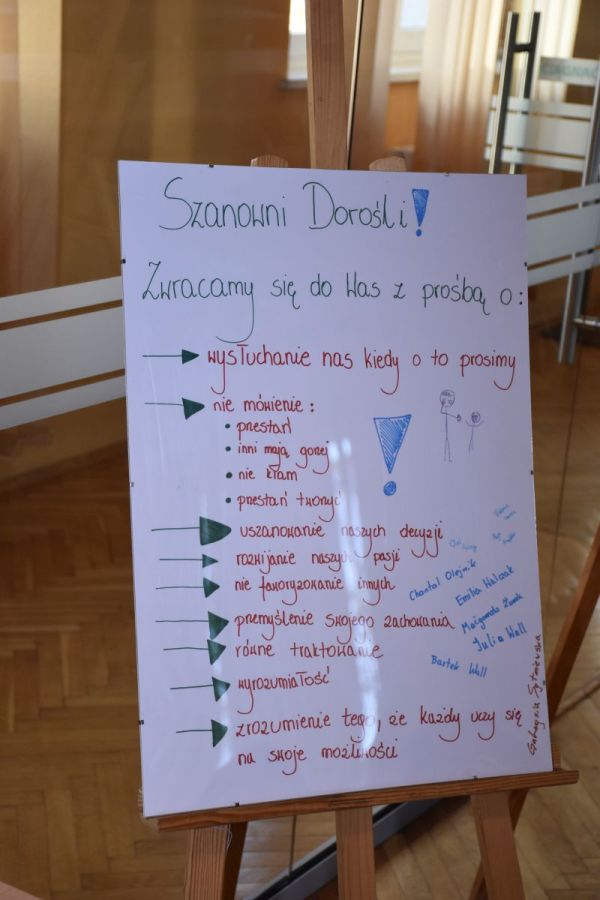 Szanowni Dorośli!
Zwracamy się do Was z prośbą o:
wysłuchanie nas kiedy o to prosimy
nie mówienie:
• przestań
• inni mają gorzej
• nie kłam
• przestań tworzyć
uszanowanie naszych decyzji
rozwijanie naszych pasji
nie faworyzowanie innych
przemyślenie swojego zachowania
równe traktowanie
wyrozumiałość
zrozumienie tego, że każdy uczy się
na swoje możliwości
Chantal Olejnik
Emilia Walczak
Małgorzata
Julia Woll
Bartek Woll